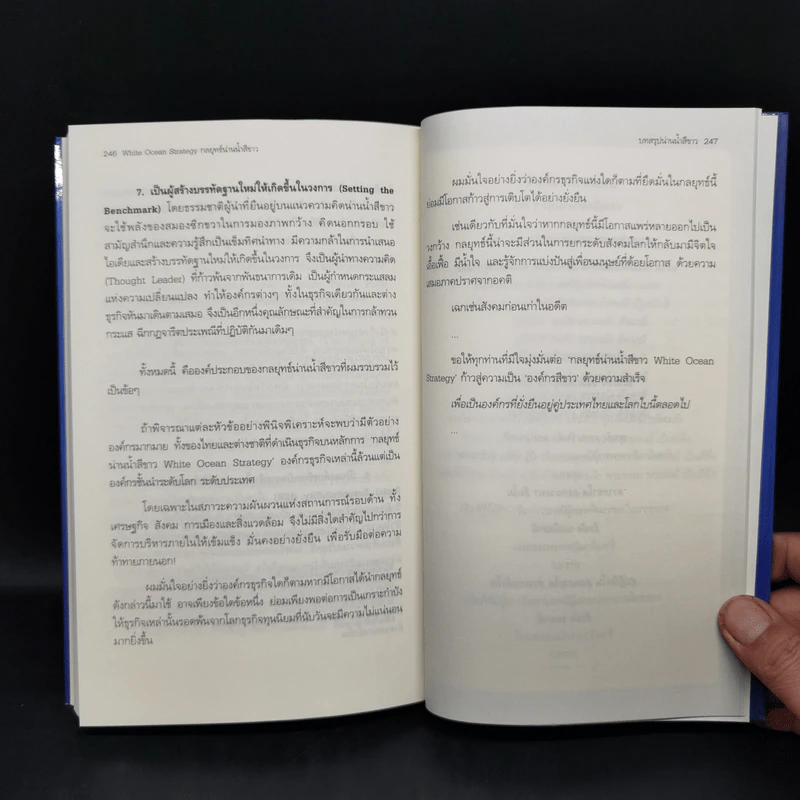 246 White Ocean Strategy กลยุทธ์น่านน้ำสีขาว
7. เป็นผู้สร้างบรรทัดฐานใหม่ให้เกิดขึ้นในวงการ (Setting the
Benchmark) โดยธรรมชาติผู้นำที่ยืนอยู่บนแนวความคิดน่านน้ำสีขาว
จะใช้พลังของสมองซีกขวาในการมองภาพกว้าง คิดนอกกรอบ ใช้
สามัญสำนึกและความรู้สึกเป็นเข็มทิศนำทาง มีความกล้าในการนำเสนอ
ไอเดียและสร้างบรรทัดฐานใหม่ให้เกิดขึ้นในวงการ จึงเป็นผู้นำทางความคิด
(Thought Leader) ที่ก้าวพ้นจากพันธนาการเดิม เป็นผู้กำหนดกระแสลม
แห่งความเปลี่ยนแปลง ทำให้องค์กรต่างๆ ทั้งในธุรกิจเดียวกันและต่าง
ธุรกิจหันมาเดินตามเสมอ จึงเป็นอีกหนึ่งคุณลักษณะที่สำคัญในการกล้าทวน
กระแส ฉีกกฎจารีตประเพณีที่ปฏิบัติกันมาเดิมๆ
ทั้งหมดนี้ คือองค์ประกอบของกลยุทธ์น่านน้ำสีขาวที่ผมรวบรวมไว้
เป็นข้อๆ
ถ้าพิจารณาแต่ละหัวข้ออย่างพินิจพิเคราะห์จะพบว่ามีตัวอย่าง
องค์กรมากมาย ทั้งของไทยและต่างชาติที่ดำเนินธุรกิจบนหลักการ 'กลยุทธ์
น่านน้ำสีขาว White Ocean Strategy' องค์กรธุรกิจเหล่านี้ล้วนแต่เป็น
องค์กรชั้นนำระดับโลก ระดับประเทศ
โดยเฉพาะในสภาวะความผันผวนแห่งสถานการณ์รอบด้าน ทั้ง
เศรษฐกิจ สังคม การเมืองและสิ่งแวดล้อม จึงไม่มีสิ่งใดสำคัญไปกว่าการ
จัดการบริหารภายในให้เข้มแข็ง มั่นคงอย่างยั่งยืน เพื่อรับมือต่อความ
ท้าทายภายนอก!
ผมมั่นใจอย่างยิ่งว่าองค์กรธุรกิจใดก็ตามหากมีโอกาสได้นำกลยุทธ์
ดังกล่าวนี้มาใช้ อาจเพียงข้อใดข้อหนึ่ง ย่อมเพียงพอต่อการเป็นเกราะกำบัง
ให้ธุรกิจเหล่านั้นรอดพ้นจากโลกธุรกิจทุนนิยมที่นับวันจะมีความไม่แน่นอน
มากยิ่งขึ้น
บทสรุปน่านน้ำสีขาว 247
ผมมั่นใจอย่างยิ่งว่าองค์กรธุรกิจแห่งใดก็ตามที่ยึดมั่นในกลยุทธ์นี้
ย่อมมีโอกาสก้าวสู่การเติบโตได้อย่างยั่งยืน
เช่นเดียวกับที่มั่นใจว่าหากกลยุทธ์นี้มีโอกาสแพร่หลายออกไปเป็น
วงกว้าง กลยุทธ์นี้น่าจะมีส่วนในการยกระดับสังคมโลกให้กลับมามีจิตใจ
เอื้อเฟื้อ มีน้ำใจ และรู้จักการแบ่งปันสู่เพื่อนมนุษย์ที่ด้อยโอกาส ด้วยความ
เสมอภาคปราศจากอคติ
เฉกเช่นสังคมก่อนเก่าในอดีต
...
ขอให้ทุกท่านที่มีใจมุ่งมั่นต่อ 'กลยุทธ์น่านน้ำสีขาว White Ocean
Strategy' ก้าวสู่ความเป็น 'องค์กรสีขาว' ด้วยความสำเร็จ
เพื่อเป็นองค์กรที่ยั่งยืนอยู่คู่ประเทศไทยและโลกใบนี้ตลอดไป
...